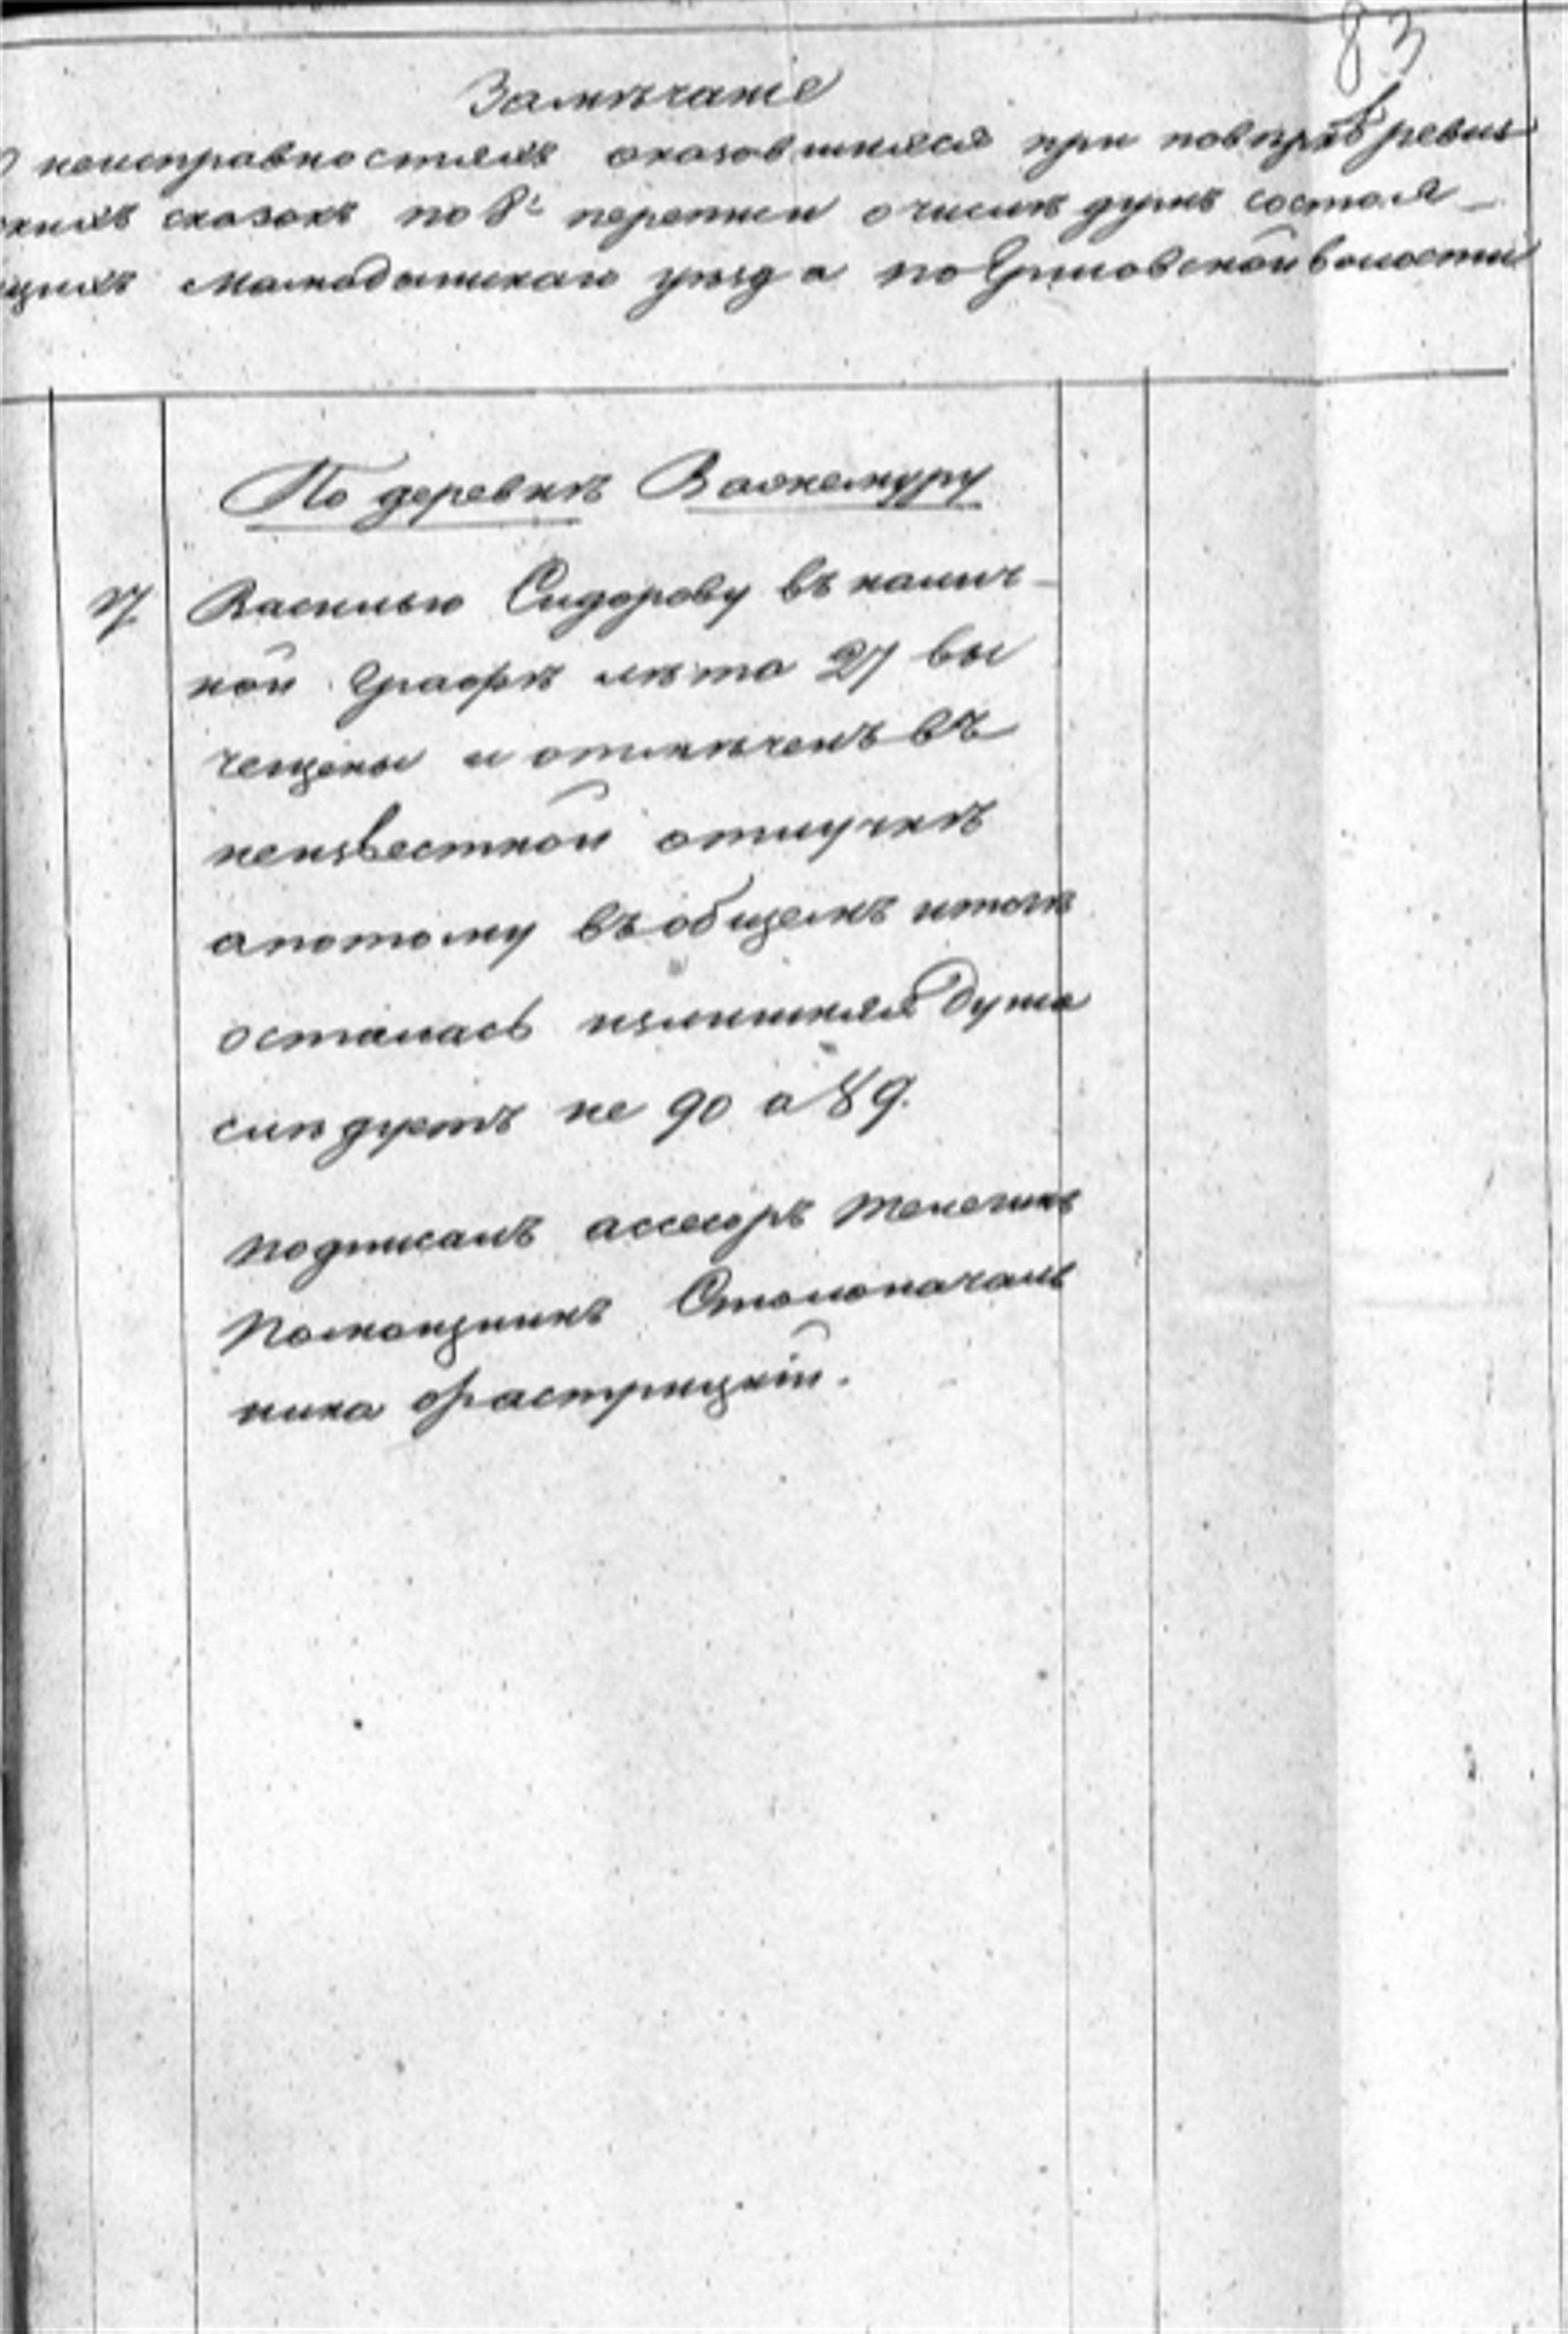 83
Замѣчаніе
О неисправностяхъ оказовшихся при повѣркѣ ревиз
скихъ сказокъ по 8й переписи о числѣ душъ состоя
щихъ Мамадышскаго уѣзда по волости
По деревнѣ
27 Василью Сидорову въ налич-
ной графѣ лѣта 27 вы
чещены и отмѣченъ въ
неизвестной отлучкѣ
апотому въ общемъ итогѣ
осталась излишняя душа
слѣдуетъ не 90 а 89.
подписалъ ассесоръ Телегинъ
Помощникъ Столоначаль
ника